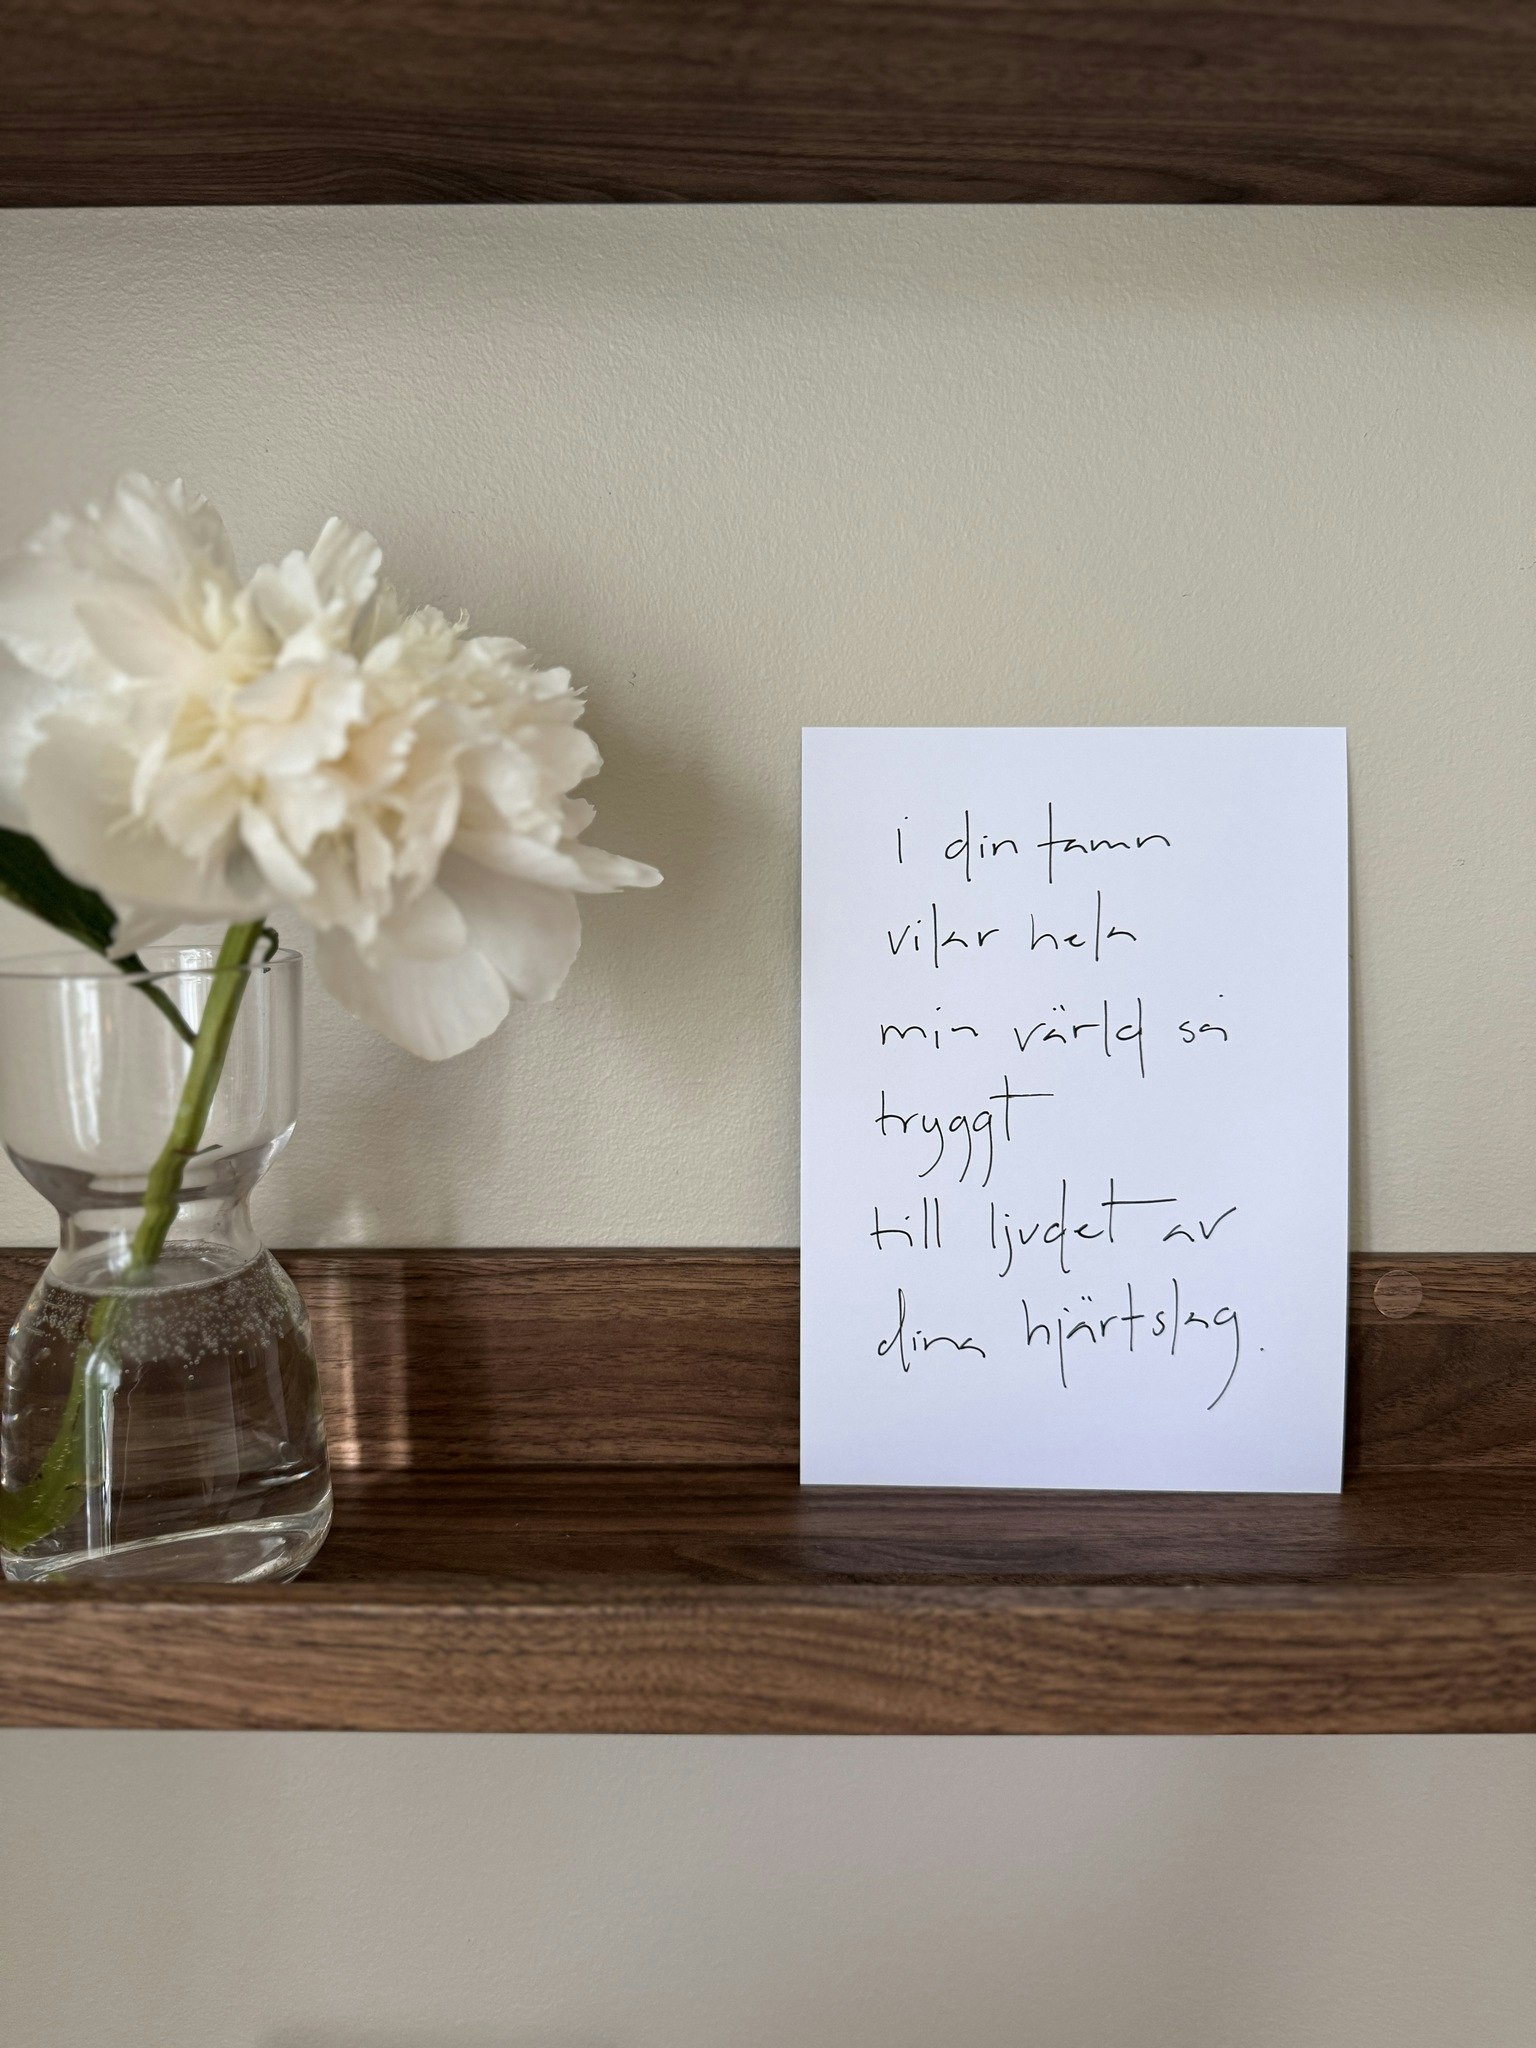 i din famn
vilar hela
min värld så
tryggt
till ljudet av
dina hjärtslag.